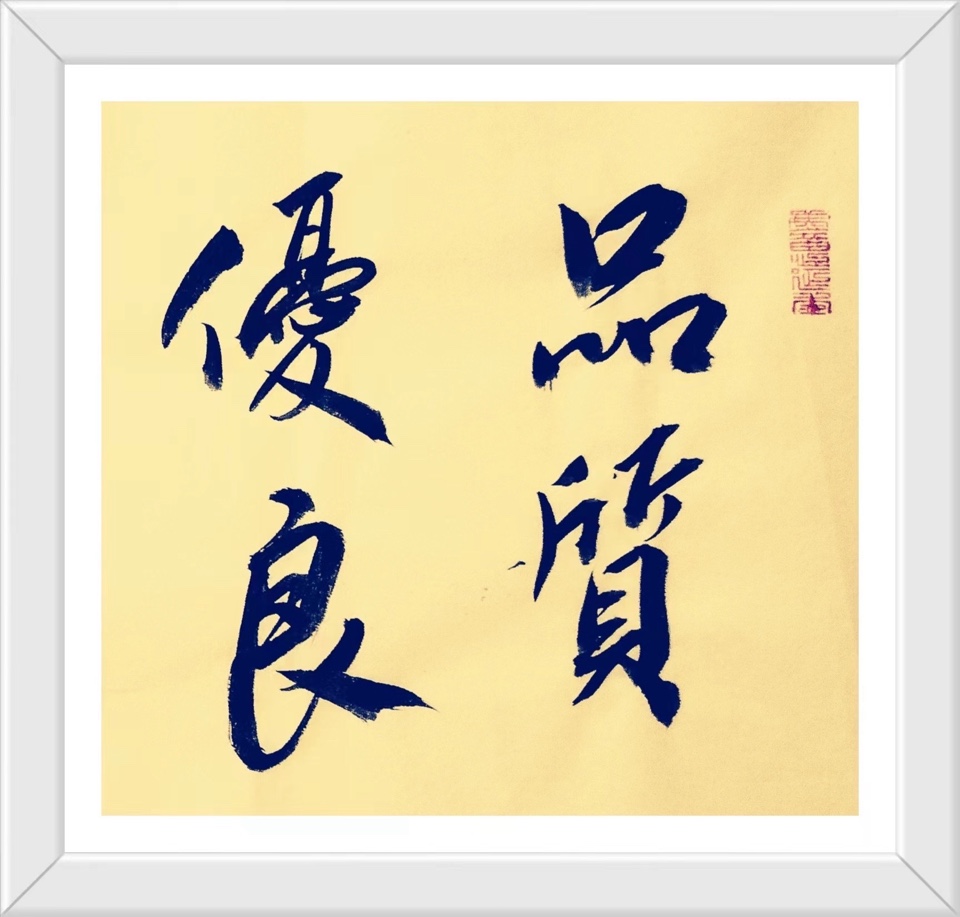 品質
優良